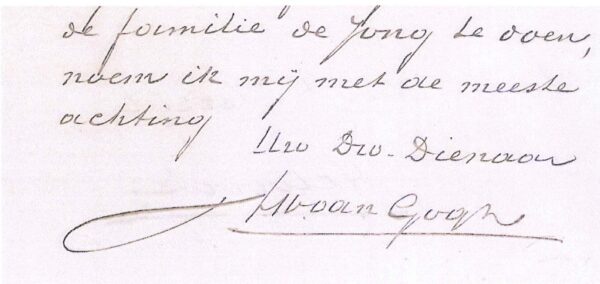 de familie de Jong te doen,
noem ik mij met de meeste
achting
Uw Dw. Dienaar
van Gogh